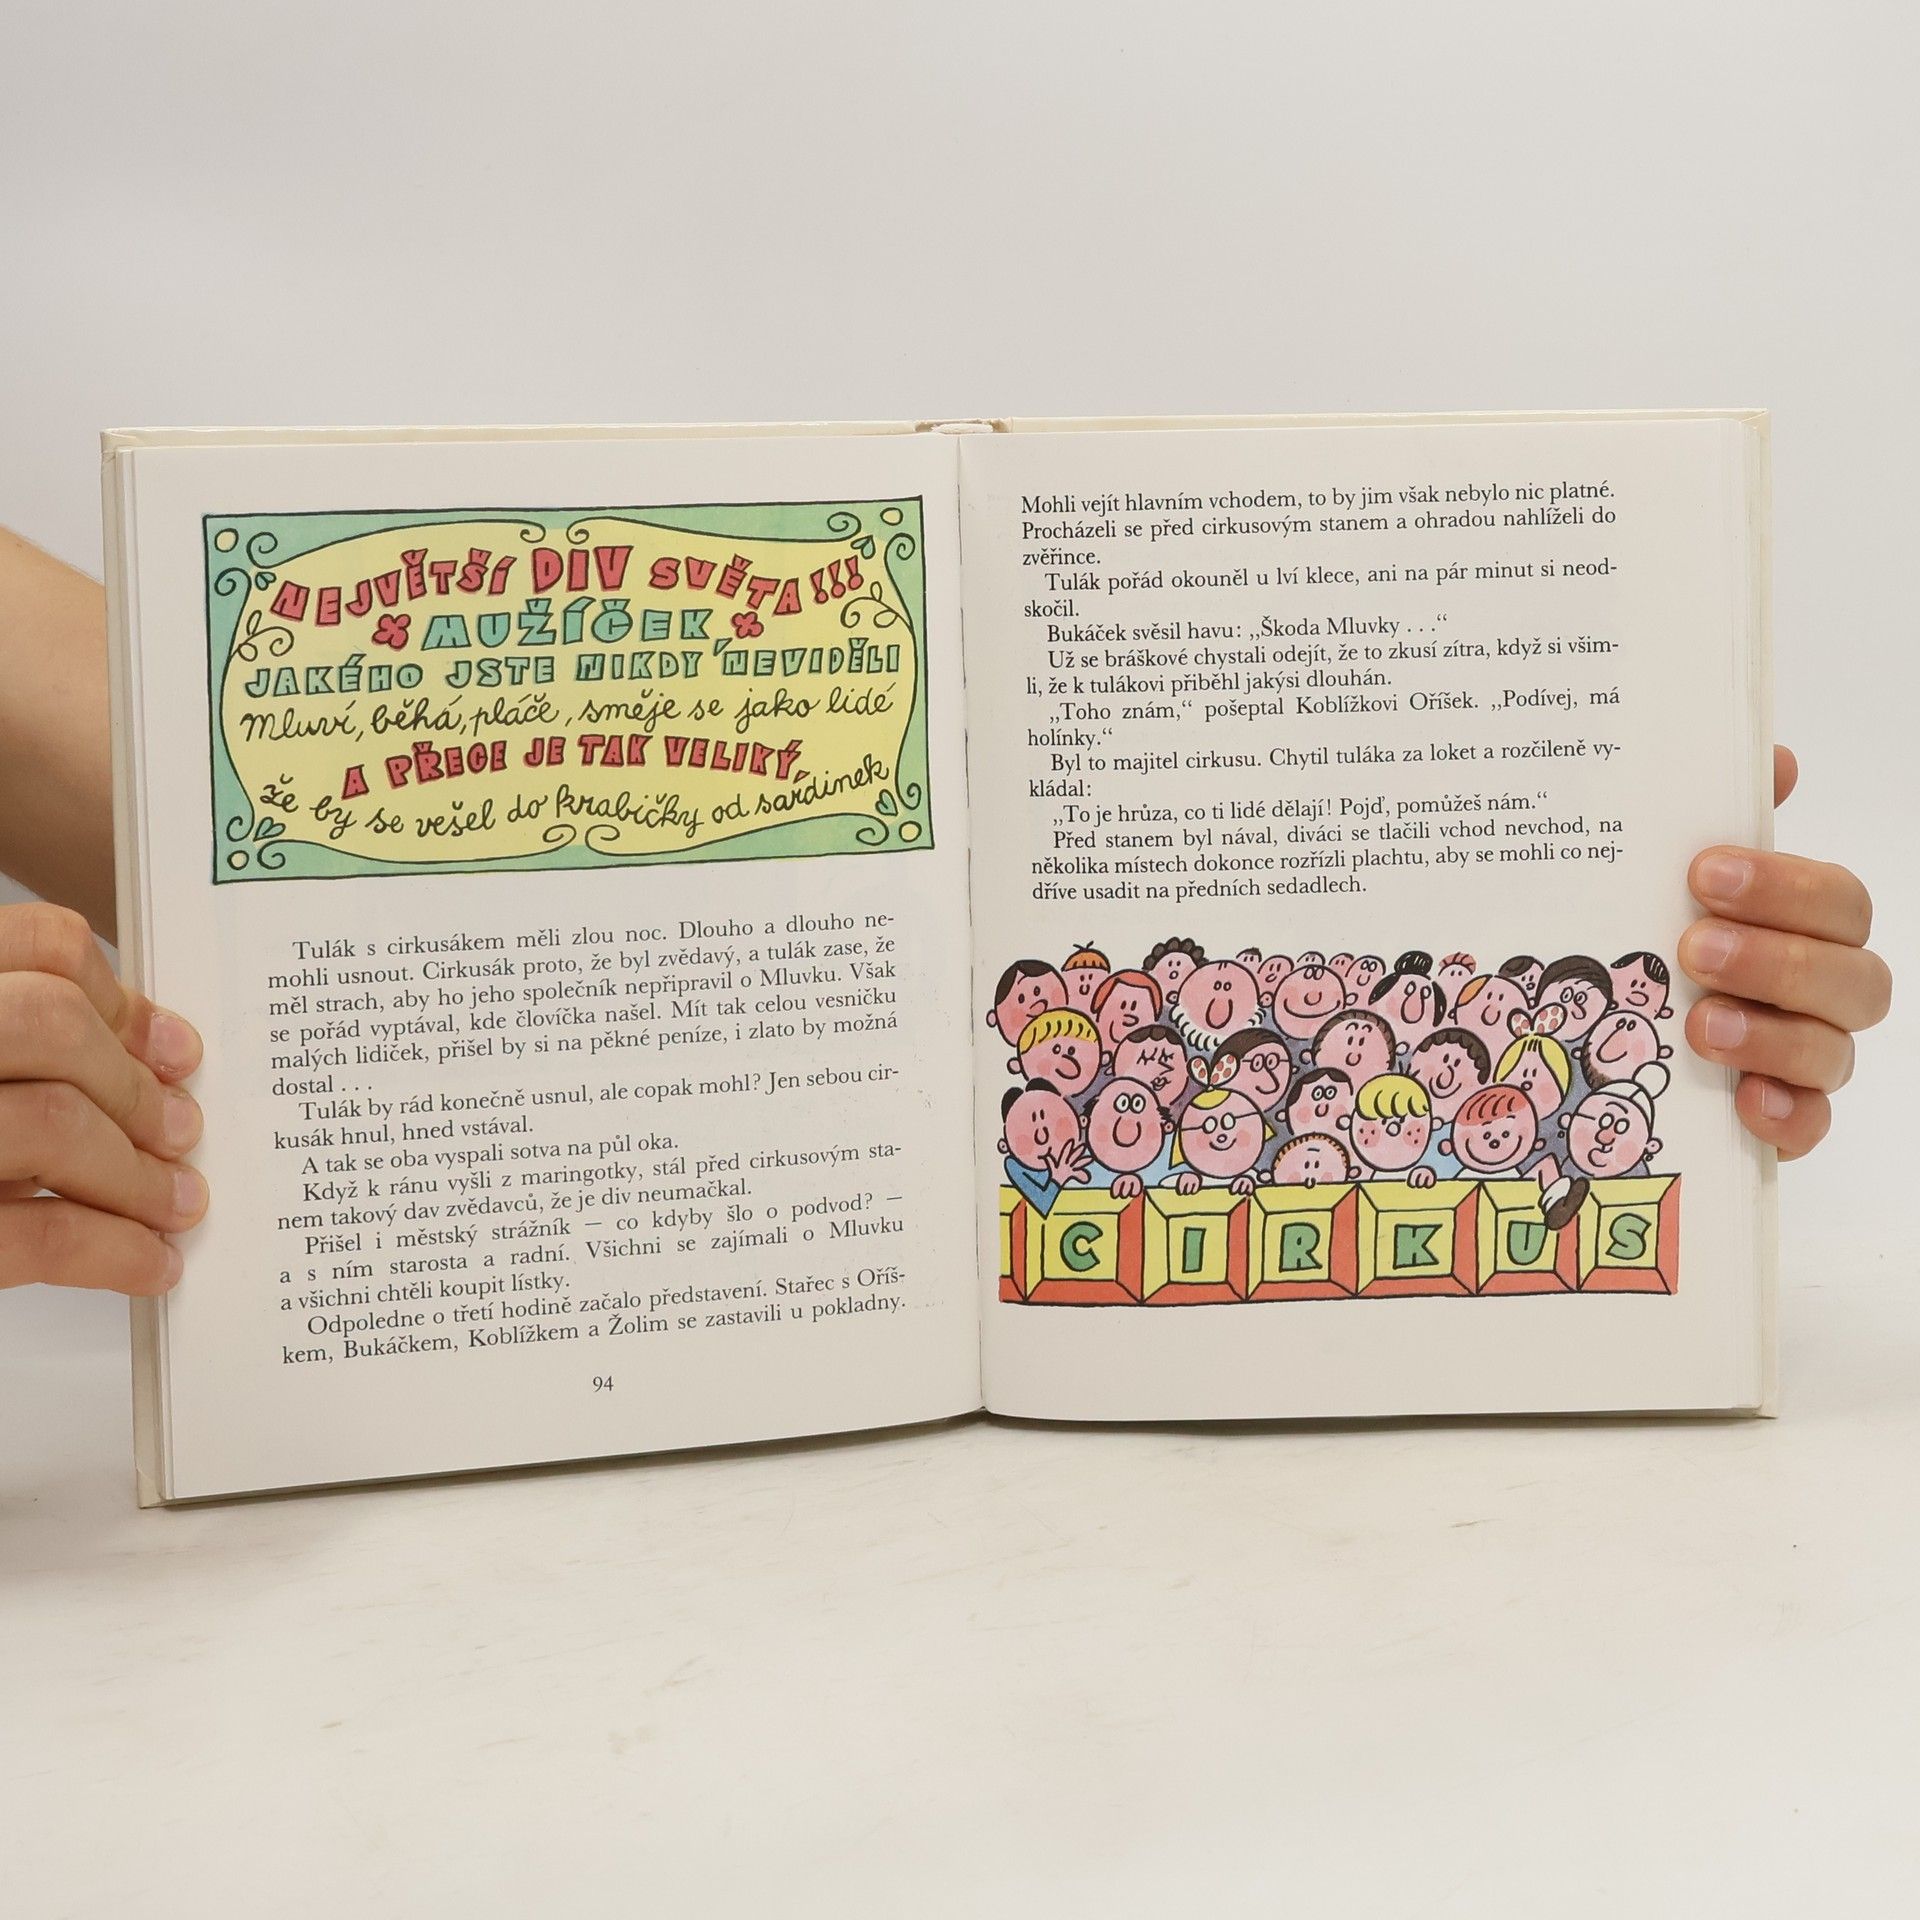 NEJVĚTŠÍ DIV SVĚTA!!!
MUŽÍČEK,
JAKÉHO JSTE NIKDY NEVIDĚLI
Mluví, běhá, pláče, směje se jako lidé
A PŘECE JE TAK VELIKÝ,
že by se vešel do krabičky od sardinek
Tulák s cirkusákem měli zlou noc. Dlouho a dlouho ne-
mohli usnout. Cirkusák proto, že byl zvědavý, a tulák zase, že
měl strach, aby ho jeho společník nepřipravil o Mluvku. Však
se pořád vyptával, kde človíčka našel. Mít tak celou vesničku
malých lidiček, přišel by si na pěkné peníze, i zlato by možná
dostal . . .
Tulák by rád konečně usnul, ale copak mohl? Jen sebou cir-
kusák hnul, hned vstával.
A tak se oba vyspali sotva na půl oka.
Když k ránu vyšli z maringotky, stál před cirkusovým sta-
nem takový dav zvědavců, že je div neumačkal.
Přišel i městský strážník — co kdyby šlo o podvod? —
a s ním starosta a radní. Všichni se zajímali o Mluvku
a všichni chtěli koupit lístky.
Odpoledne o třetí hodině začalo představení. Stařec s Oříš-
kem, Bukáčkem, Koblížkem a Žolim se zastavili u pokladny.
94
Mohli vejít hlavním vchodem, to by jim však nebylo nic platné.
Procházeli se před cirkusovým stanem a ohradou nahlíželi do
zvěřince.
Tulák pořád okouněl u lví klece, ani na pár minut si neod-
skočil.
Bukáček svěsil havu: „Škoda Mluvky . . .“
Už se bráškové chystali odejít, že to zkusí zítra, když si všim-
li, že k tulákovi přiběhl jakýsi dlouhán.
„Toho znám,“ pošeptal Koblížkovi Oříšek. „Podívej, má
holínky.“
Byl to majitel cirkusu. Chytil tuláka za loket a rozčileně vy-
kládal:
„To je hrůza, co ti lidé dělají! Pojď, pomůžeš nám.“
Před stanem byl nával, diváci se tlačili vchod nevchod, na
několika místech dokonce rozřízli plachtu, aby se mohli co nej-
dříve usadit na předních sedadlech.
CIRKUS